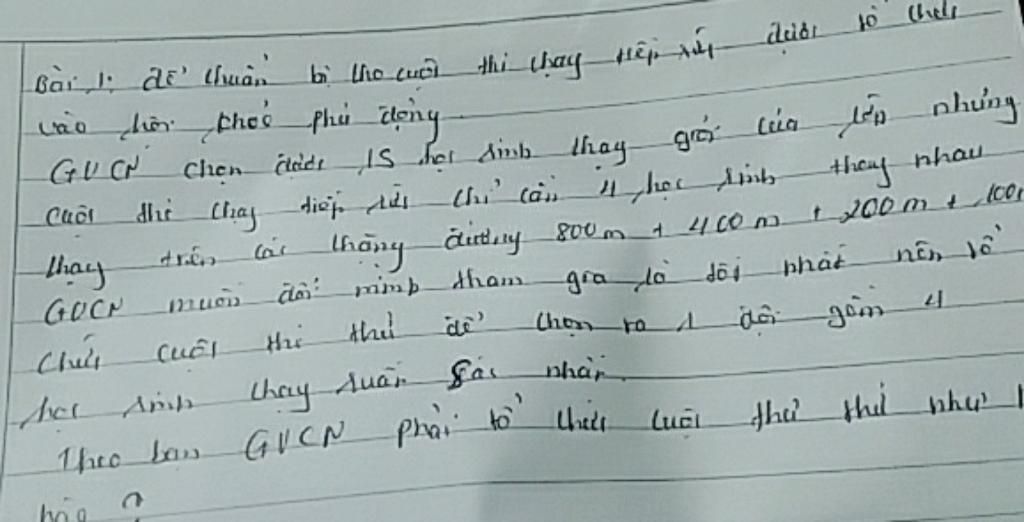 Bài 1: để chuẩn bị cho cuộc thi chạy tiếp sức được tổ chức
vào hội khoẻ phù đổng
GVCN chọn được 15 học sinh chạy giỏi của lớp nhưng
cuộc thi chạy tiếp sức chỉ cần 4 học sinh thay nhau
chạy trên các chặng đường 800m + 400m + 200m + 100m
GVCN muốn đội mình tham gia là đội nhất nên tổ
chức cuộc thi thử để chọn ra 1 đội gồm 4
học sinh chạy xuất sắc nhất.
Theo bạn GVCN phải tổ chức cuộc thi thử như
nào ?